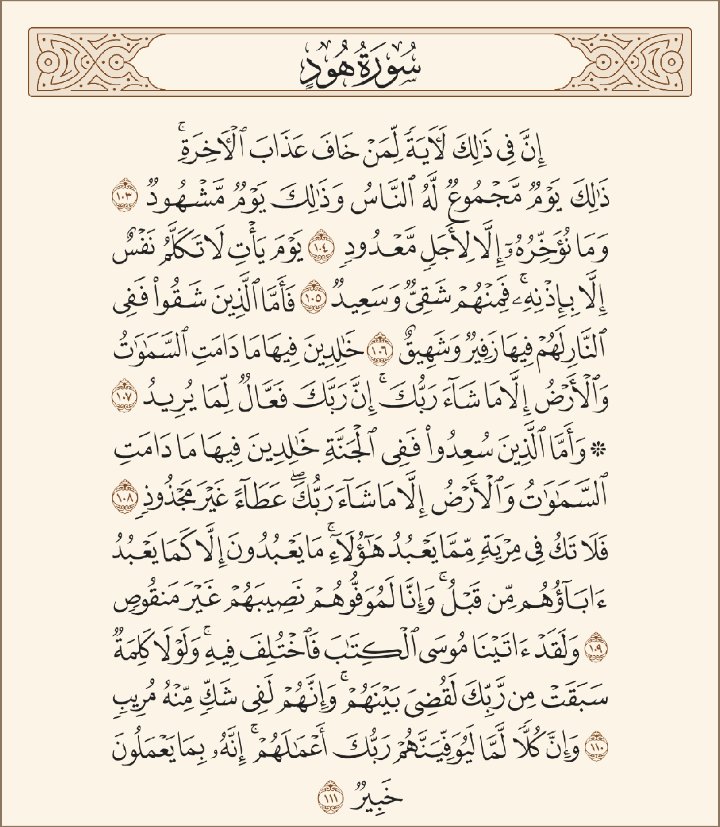 سُورَةُ هُودٍ
إِنَّ فِي ذَٰلِكَ لَأٓيَةٗ لِّمَنۡ خَافَ عَذَابَ ٱلۡأٓخِرَةِۚ
ذَٰلِكَ يَوۡمٞ مَّجۡمُوعٞ لَّهُ ٱلنَّاسُ وَذَٰلِكَ يَوۡمٞ مَّشۡهُودٞ ١٠٣
وَمَا نُؤَخِّرُهُۥٓ إِلَّا لِأَجَلٖ مَّعۡدُودٖ ١٠٤ يَوۡمَ يَأۡتِ لَا تَكَلَّمُ نَفۡسٌ
إِلَّا بِإِذۡنِهِۦۚ فَمِنۡهُمۡ شَقِيّٞ وَسَعِيدٞ ١٠٥ فَأَمَّا ٱلَّذِينَ شَقُواْ فَفِي
ٱلنَّارِ لَهُمۡ فِيهَا زَفِيرٞ وَشَهِيقٌ ١٠٦ خَٰلِدِينَ فِيهَا مَا دَامَتِ ٱلسَّمَٰوَٰتُ
وَٱلۡأَرۡضُ إِلَّا مَا شَآءَ رَبُّكَۚ إِنَّ رَبَّكَ فَعَّالٞ لِّمَا يُرِيدُ ١٠٧
۞ وَأَمَّا ٱلَّذِينَ سُعِدُواْ فَفِي ٱلۡجَنَّةِ خَٰلِدِينَ فِيهَا مَا دَامَتِ
ٱلسَّمَٰوَٰتُ وَٱلۡأَرۡضُ إِلَّا مَا شَآءَ رَبُّكَۖ عَطَآءً غَيۡرَ مَجۡذُوذٖ ١٠٨
فَلَا تَكُ فِي مِرۡيَةٖ مِّمَّا يَعۡبُدُ هَٰٓؤُلَآءِۚ مَا يَعۡبُدُونَ إِلَّا كَمَا يَعۡبُدُ
ءَابَآؤُهُم مِّن قَبۡلُۚ وَإِنَّا لَمُوَفُّوهُمۡ نَصِيبَهُمۡ غَيۡرَ مَنقُوصٖ
١٠٩ وَلَقَدۡ ءَاتَيۡنَا مُوسَى ٱلۡكِتَٰبَ فَٱخۡتُلِفَ فِيهِۚ وَلَوۡلَا كَلِمَةٞ
سَبَقَتۡ مِن رَّبِّكَ لَقُضِيَ بَيۡنَهُمۡۚ وَإِنَّهُمۡ لَفِي شَكّٖ مِّنۡهُ مُرِيبٖ
١١٠ وَإِنَّ كُلّٗا لَّمَّا لَيُوَفِّيَنَّهُمۡ رَبُّكَ أَعۡمَٰلَهُمۡۚ إِنَّهُۥ بِمَا يَعۡمَلُونَ
خَبِيرٞ ١١١